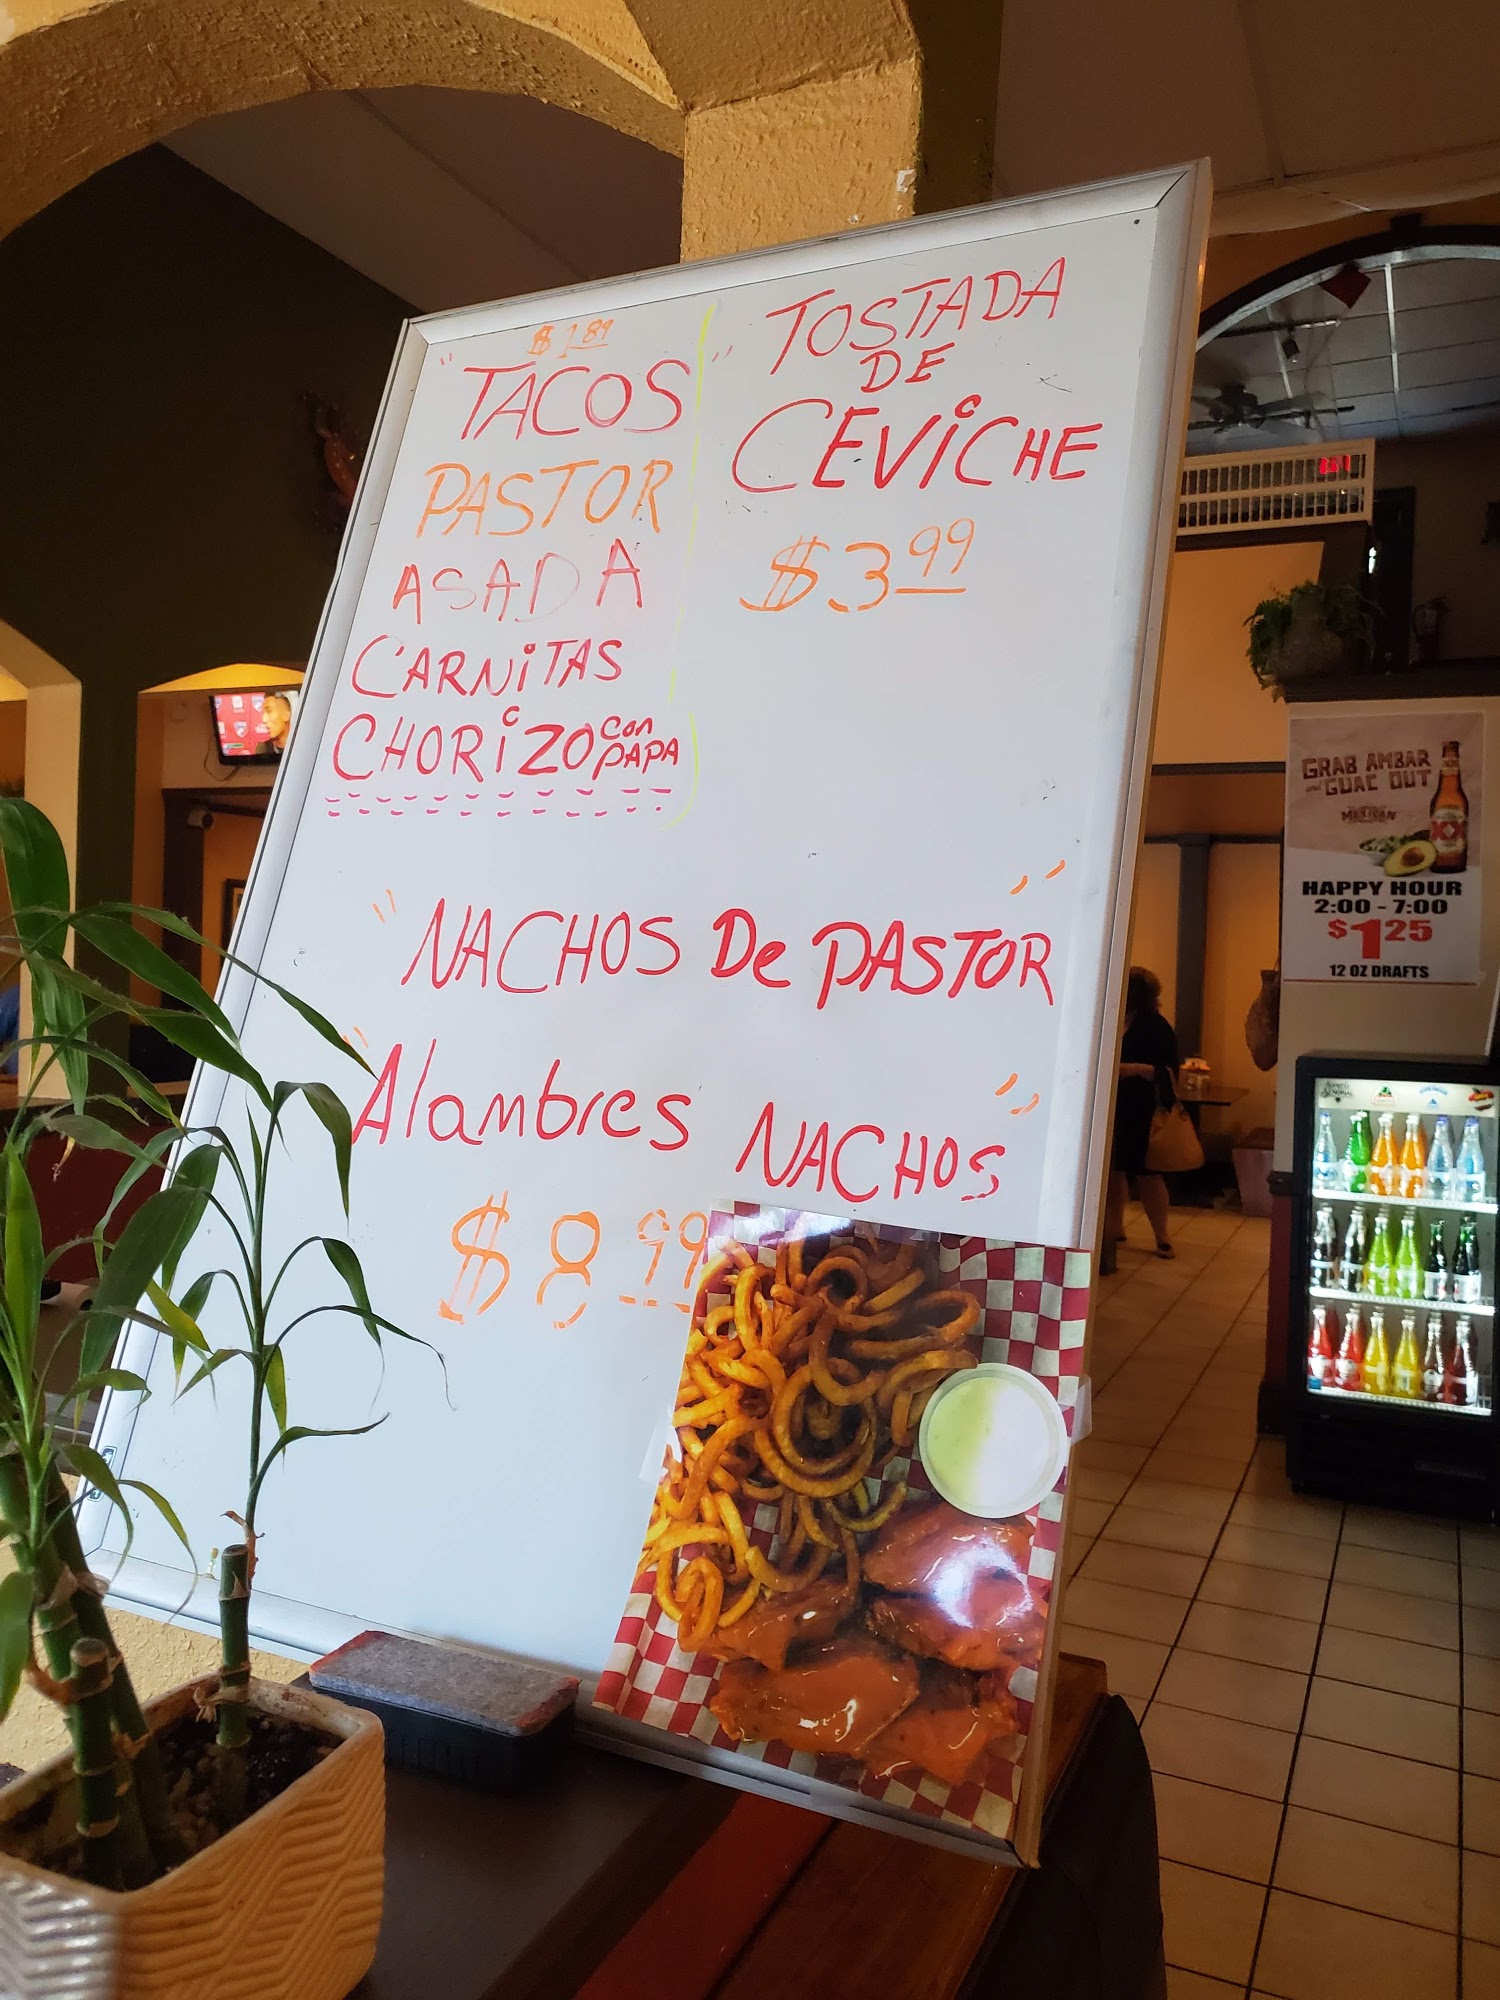 $1.89
"TACOS
PASTOR
ASADA
CARNiTAS
CHORiZO con PAPA
" TOSTADA
DE
CEViCHE
$3.99
"NACHOS De PASTOR"
"Alambres NACHOS"
$8.99
GRAB AMBAR
and GUAC OUT
MEXICAN
XX
HAPPY HOUR
2:00 - 7:00
$1.25
12 OZ DRAFTS